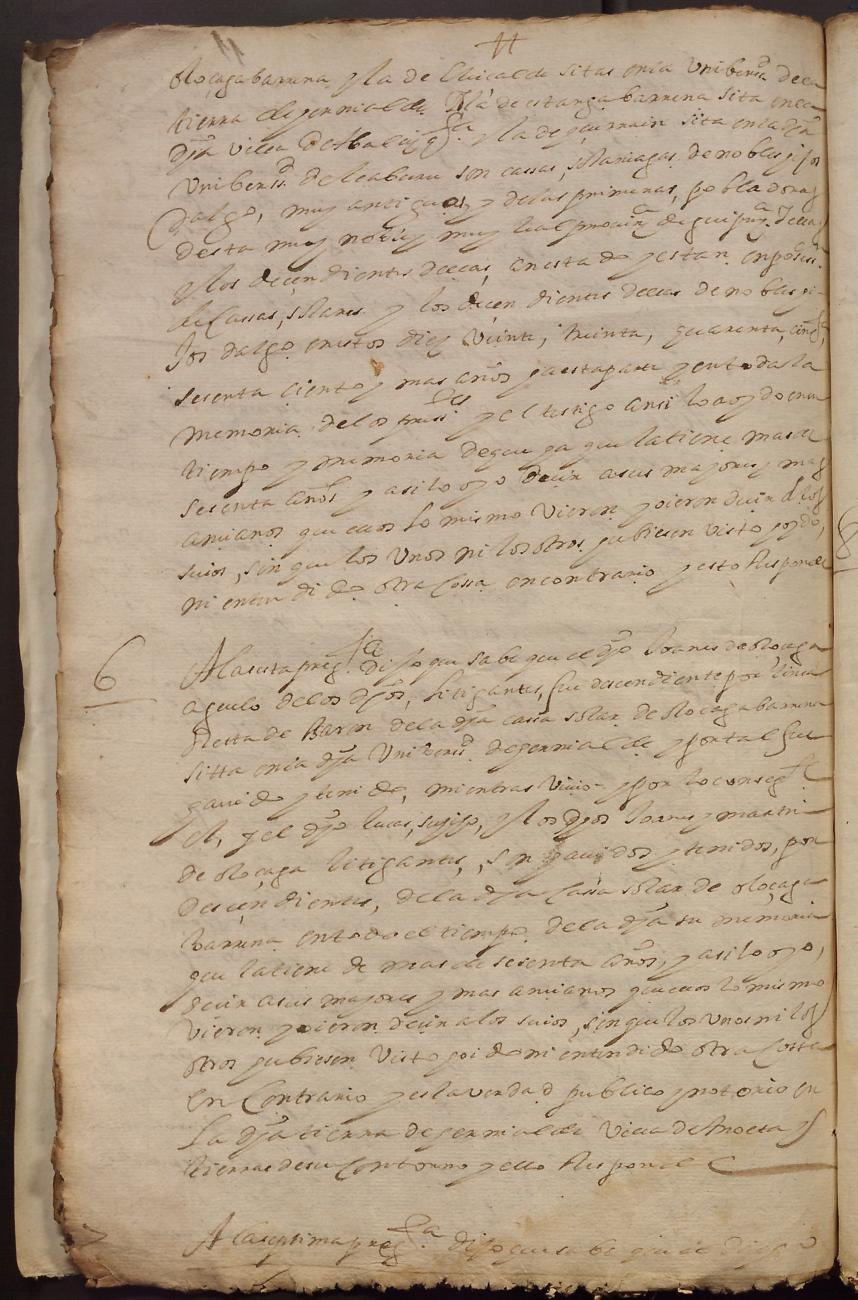 oloçaga barrena y la de Elicalde sitas en la Unibersd de la
tierra de jerrialde. Y la de estanga barrena sita en la
dha villa de y la de sita en la dha
Unibersd de leaburu son cassas, solariegas de nobles hijos
dalgo, muy antiguas y delas primeras, pobladoras
desta muy noble y muy leal provinca de guipuzca. dellas
y los decendientes dellas, an estado y estan en posesn
de Cassas, solares y los decendientes dellas de nobles hi-
jos dalgo en estos diez Veinte, treinta, quarenta, cinqta,
sesenta ciento y mas años a esta parte y en toda la
memoria de los y el testigo ansi lo a oydo en su
tiempo y memoria de que ya que la tiene mas de
sesenta años y asi lo oyo decir a sus mayores y mas
ancianos que ellos lo mismo vieron y oieron decir a los
suios, sin que los Unos ni los otros hubiesen visto oydo,
ni entendido otra Cossa en contrario y esto Responde
6
A la sesta pregta dijo que sabe que el dho Joanes de oloçaga
aguelo de los dhos, litigantes, fue descendiente por linea
Recta de Baron de la dha cassa solar de oloçaga barrena
sitta en la dha Unibersd de jerrialde y por tal fue
havido y tenido, mientras vivio y por lo consegte
el, y el dho lucas, su hijo, y los dhos Joanes y martin
de oloçaga litigantes, son havidos y tenidos, por
descendientes, de la dha Cassa solar de oloçaga
barrena en todo el tiempo de la dha su memoria
que la tiene de mas de sesenta años, y asi lo oyo,
decir a sus mayores y mas ancianos que ellos lo mismo
vieron y oieron decir a los suios, sin que los Unos ni los
otros hubiesen visto oido ni entendido otra Cossa
en Contrario y es la verdad publico y notorio en
La dha tierra de jerrialde Villa de Anoeta y
tierras de su Contorno y ello Responde
A la septima pregta dijo que sabe que